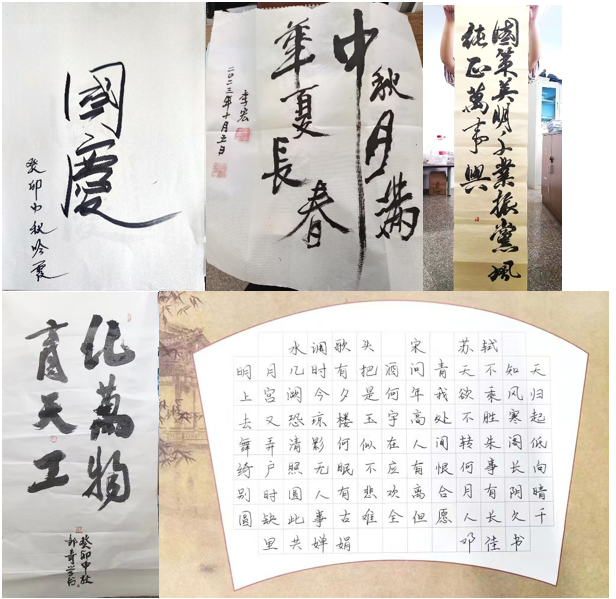 國慶
癸卯中秋吟
中秋月满
華夏長春
李宏
二〇二三年十月五日
國策英明千業振黨風
純正萬事興
化萬物
育天工
癸卯中秋
水调歌头 宋 苏轼
明月几时有把酒问青天不知天
上宫阙今夕是何年我欲乘风归
去又恐琼楼玉宇高处不胜寒起
舞弄清影何似在人间转朱阁低
绮户照无眠不应有恨何事长向
别时圆人有悲欢离合月有阴晴
圆缺此事古难全但愿人长久千
里共婵娟 邓佳书